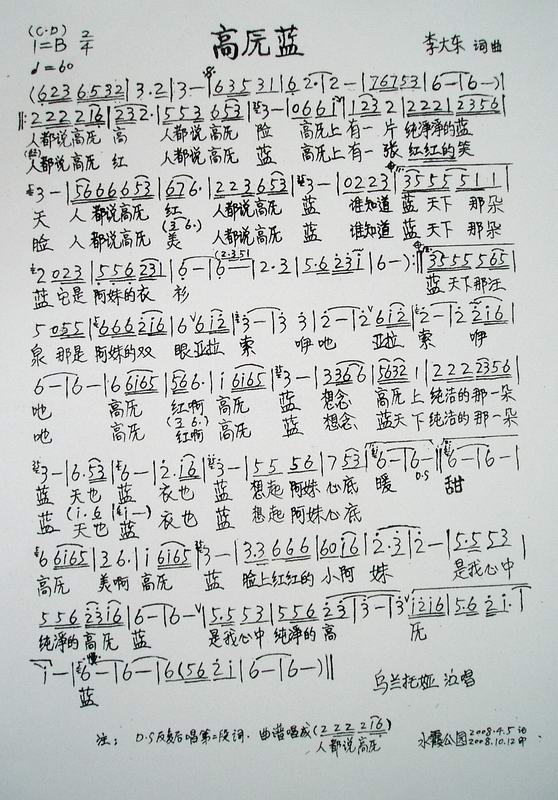 (C·D)
1=B 2/4
高原蓝
李大东 词曲
♩=60
(6 2 3 6 5 3 2 | 3·2 | 3 — | 6 3 5 3 1 | 6 2· | 2 — | 7 6 7 5 3 | 6 — | 6 —)
‖: 2 2 2 2 1 6 | 2 3 2· | 5 5 3 6 5 3 | 3 — | 0 6 6 1 | 1 2 3 2 | 2 2 2 1 | 2 3 5 6 |
人都说高原 高 人都说高原 险 高原上有一片 纯净净的蓝
人都说高原 红 人都说高原 蓝 高原上有一张 红红的笑
3 — | 5 6 6 6 6 5 3 | 6 7 6· | 2 2 3 6 5 3 | 3 — | 0 2 2 3 | 3 5 5 5 5 1 1 |
天 人都说高原 红 人都说高原 蓝 谁知道 蓝天下 那朵
脸 人都说高原 美 人都说高原 蓝 谁知道 蓝天下 那朵
2 0 2 3 | 5 5 6 2 3 1 | 6 — | 6 | 2·3 | 5·6 2 3 1 | 6 —) :‖ 3 5 5 5 5 6 5 |
蓝 它是 阿妹的衣 衫 蓝天下那汪
5 0 5 5 | 6 6 6 2 1 6 | 6 6 1 2 | 3 — | 3 3 | 2 — | 2 6 1 2 | 2 — | 2 2 1 6 |
泉 那是 阿妹的双 眼 亚拉 索 咿 吔 亚拉 索 咿
6 — | 6 — | 6 6 1 6 5 | 5 6 6· | 1 6 1 6 5 | 3 — | 3 3 6 6 | 5 6 3 2 1 | 2 2 2 2 3 5 6 |
吔 高原 红啊 高原 蓝 想念 高原上 纯洁的那一朵
吔 高原 红啊 高原 蓝 想念 蓝天下 纯洁的那一朵
3 — | 6·5 3 | 6 — | 2·1 6 | 3 — | 5 5 5 6 | 7 5 3 | 6 — | 6 — | 6 — | 6 — ‖
蓝 天也 蓝 衣也 蓝 想起 阿妹 心底 暖 D.S 甜
蓝 天也 蓝 衣也 蓝 想起 阿妹 心底
6 6 1 6 5 | 3 6· | 1 6 1 6 5 | 3 — | 3·3 6 6 6 | 6 0 1 6 | 2·3 | 2 — | 5·5 5 3 |
高原 美啊 高原 蓝 脸上红红的 小阿 妹 是我心中
5 5 6 2 3 1 6 | 6 — | 6 — | 5·5 5 3 | 5 5 6 2 3 | 3 — | 3 1 2 1 6 | 5·6 2 1· |
纯净的高原 蓝 是我心中 纯净的高 原
1 — | 6 — | 6 — | 6 (5 6 2 1 | 6 — | 6 —) ‖
蓝
乌兰托娅 演唱
注: D.S反复后唱第二段词. 曲谱唱成 (2 2 2 2 1 6)
人都说高原
水霞公园 2008.4.5 记
2008.10.12